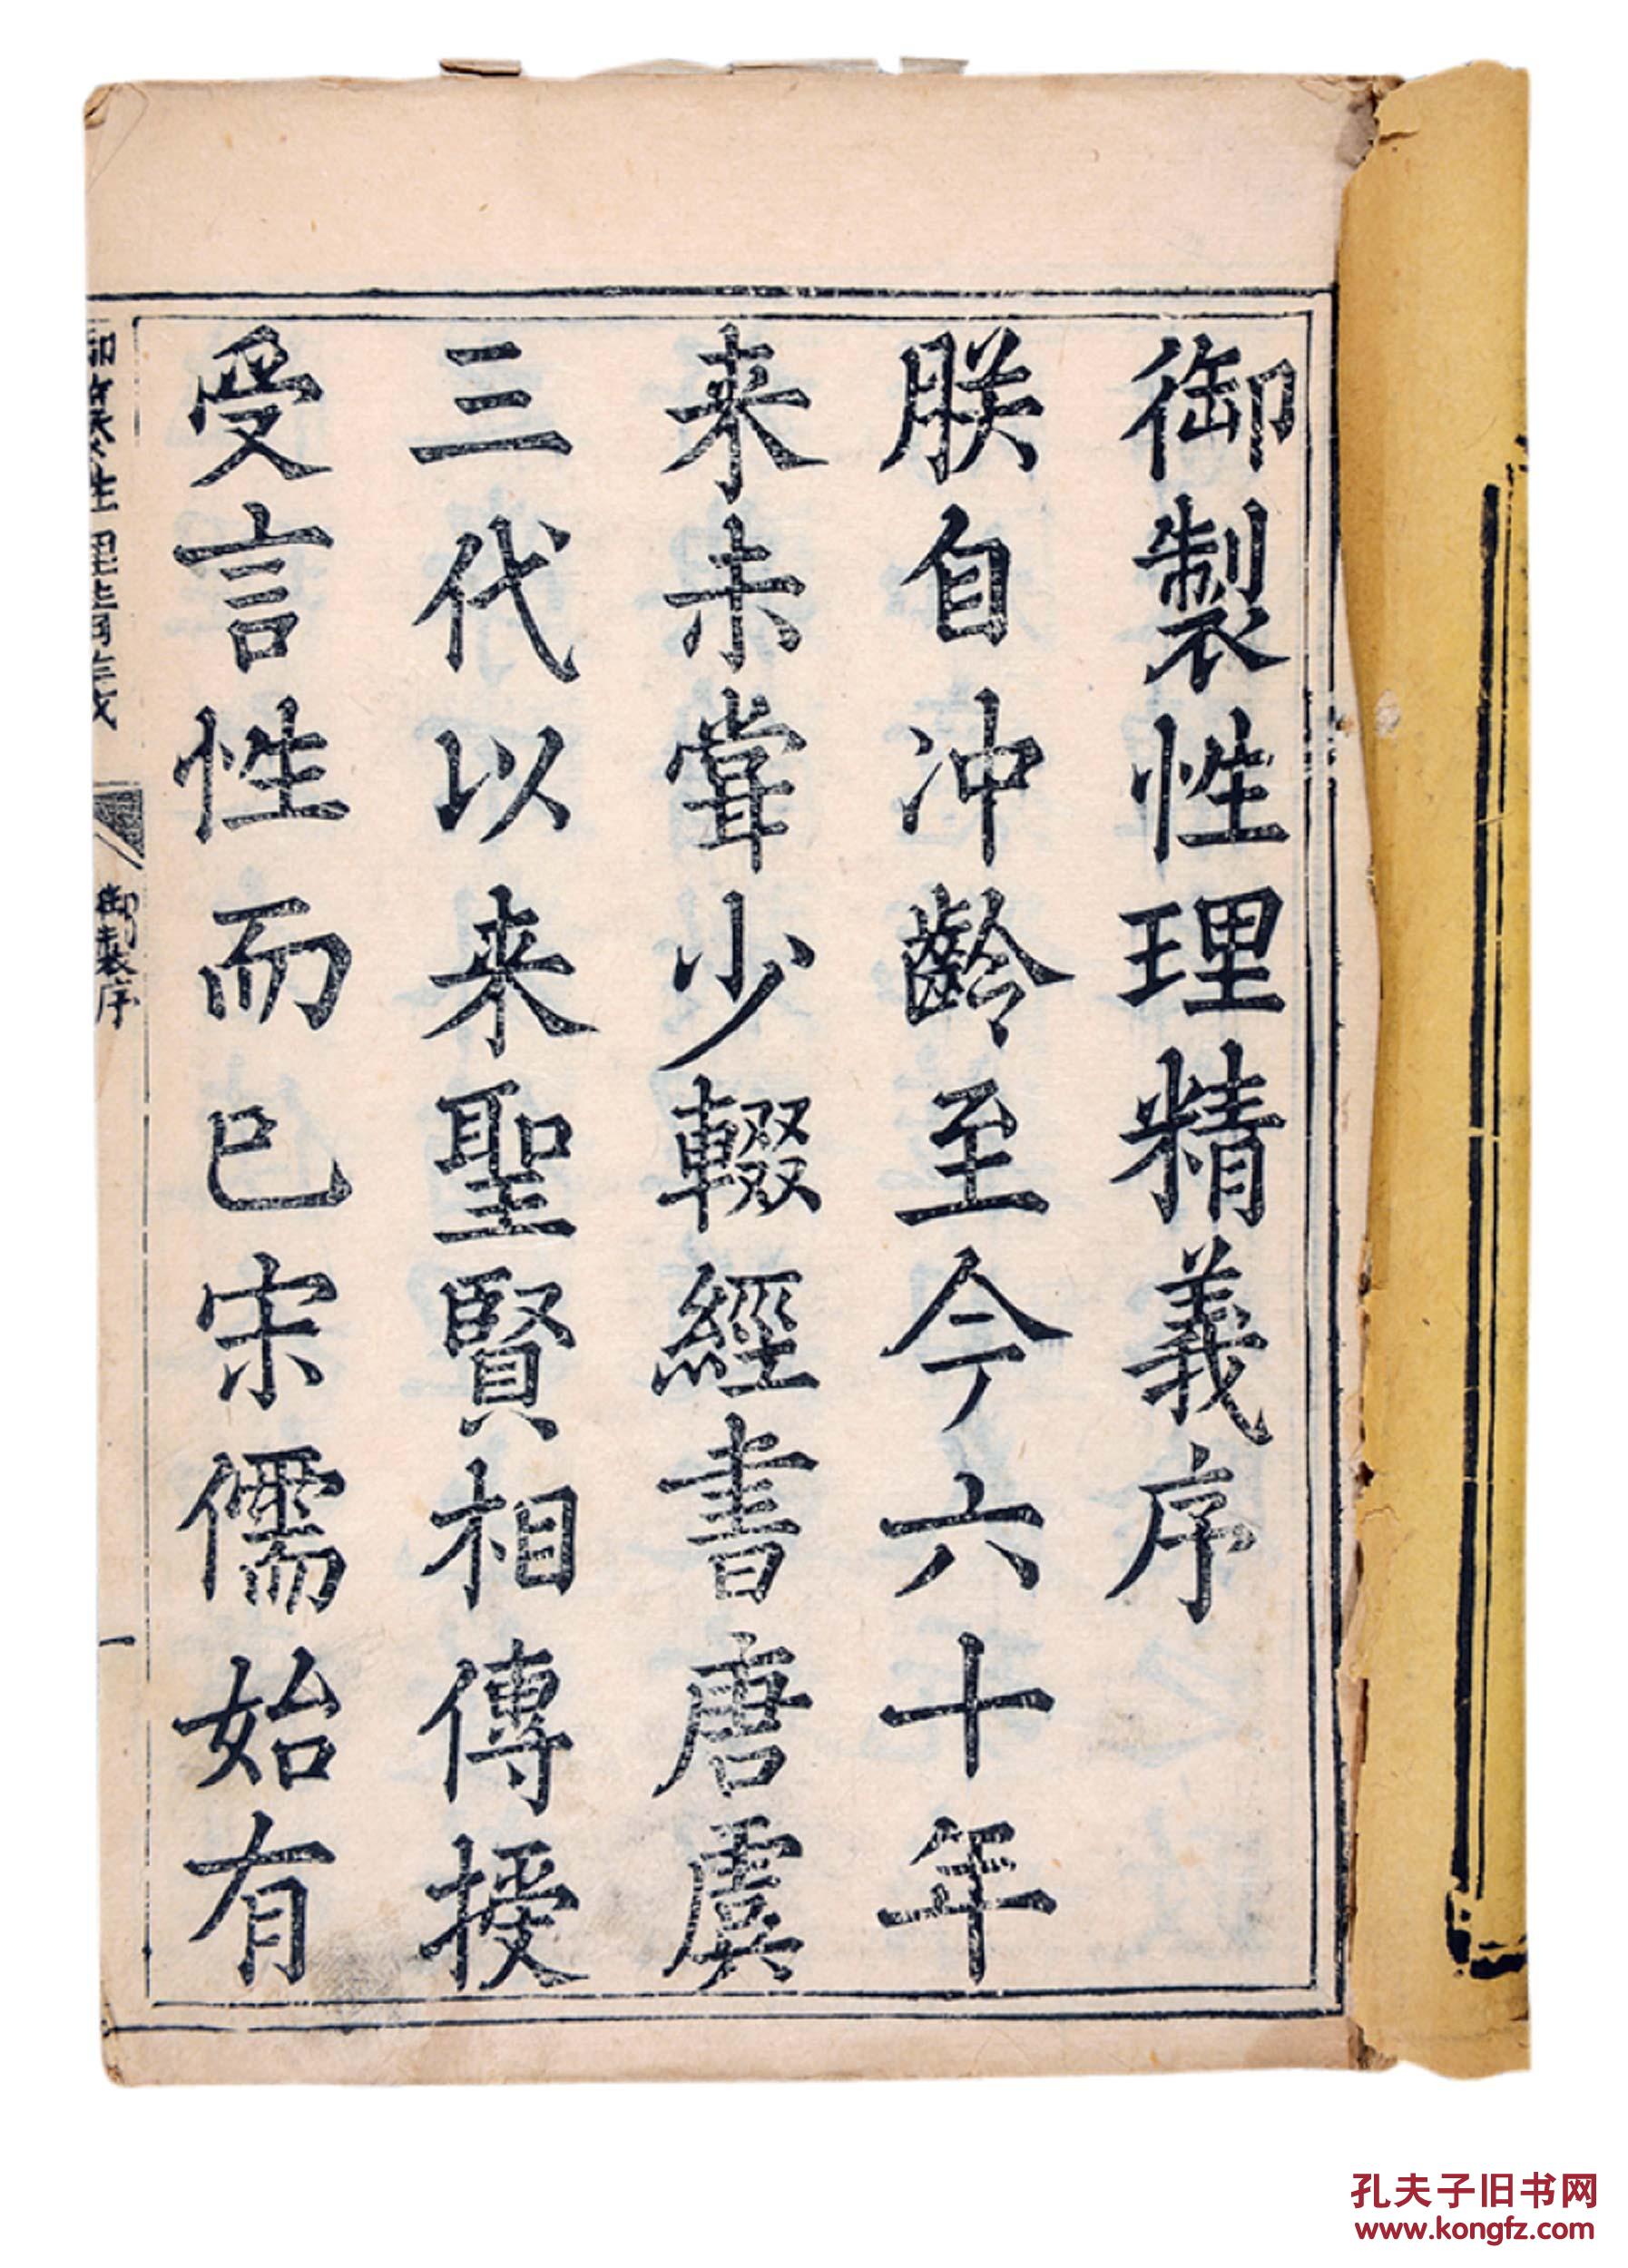 御製性理精義序
朕自沖齡至今六十年
来未甞少輟經書唐虞
三代以来聖賢相傳授
受言性而已宋儒始有
御纂性理精義
御製序
一
孔夫子旧书网
www.kongfz.com